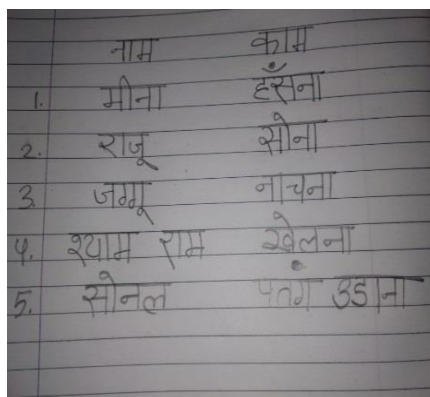 नाम काम
1. मीना हँसना
2. राजू सोना
3. जग्गू नाचना
4. श्याम राम खेलना
5. सोनल पतंग उडाना